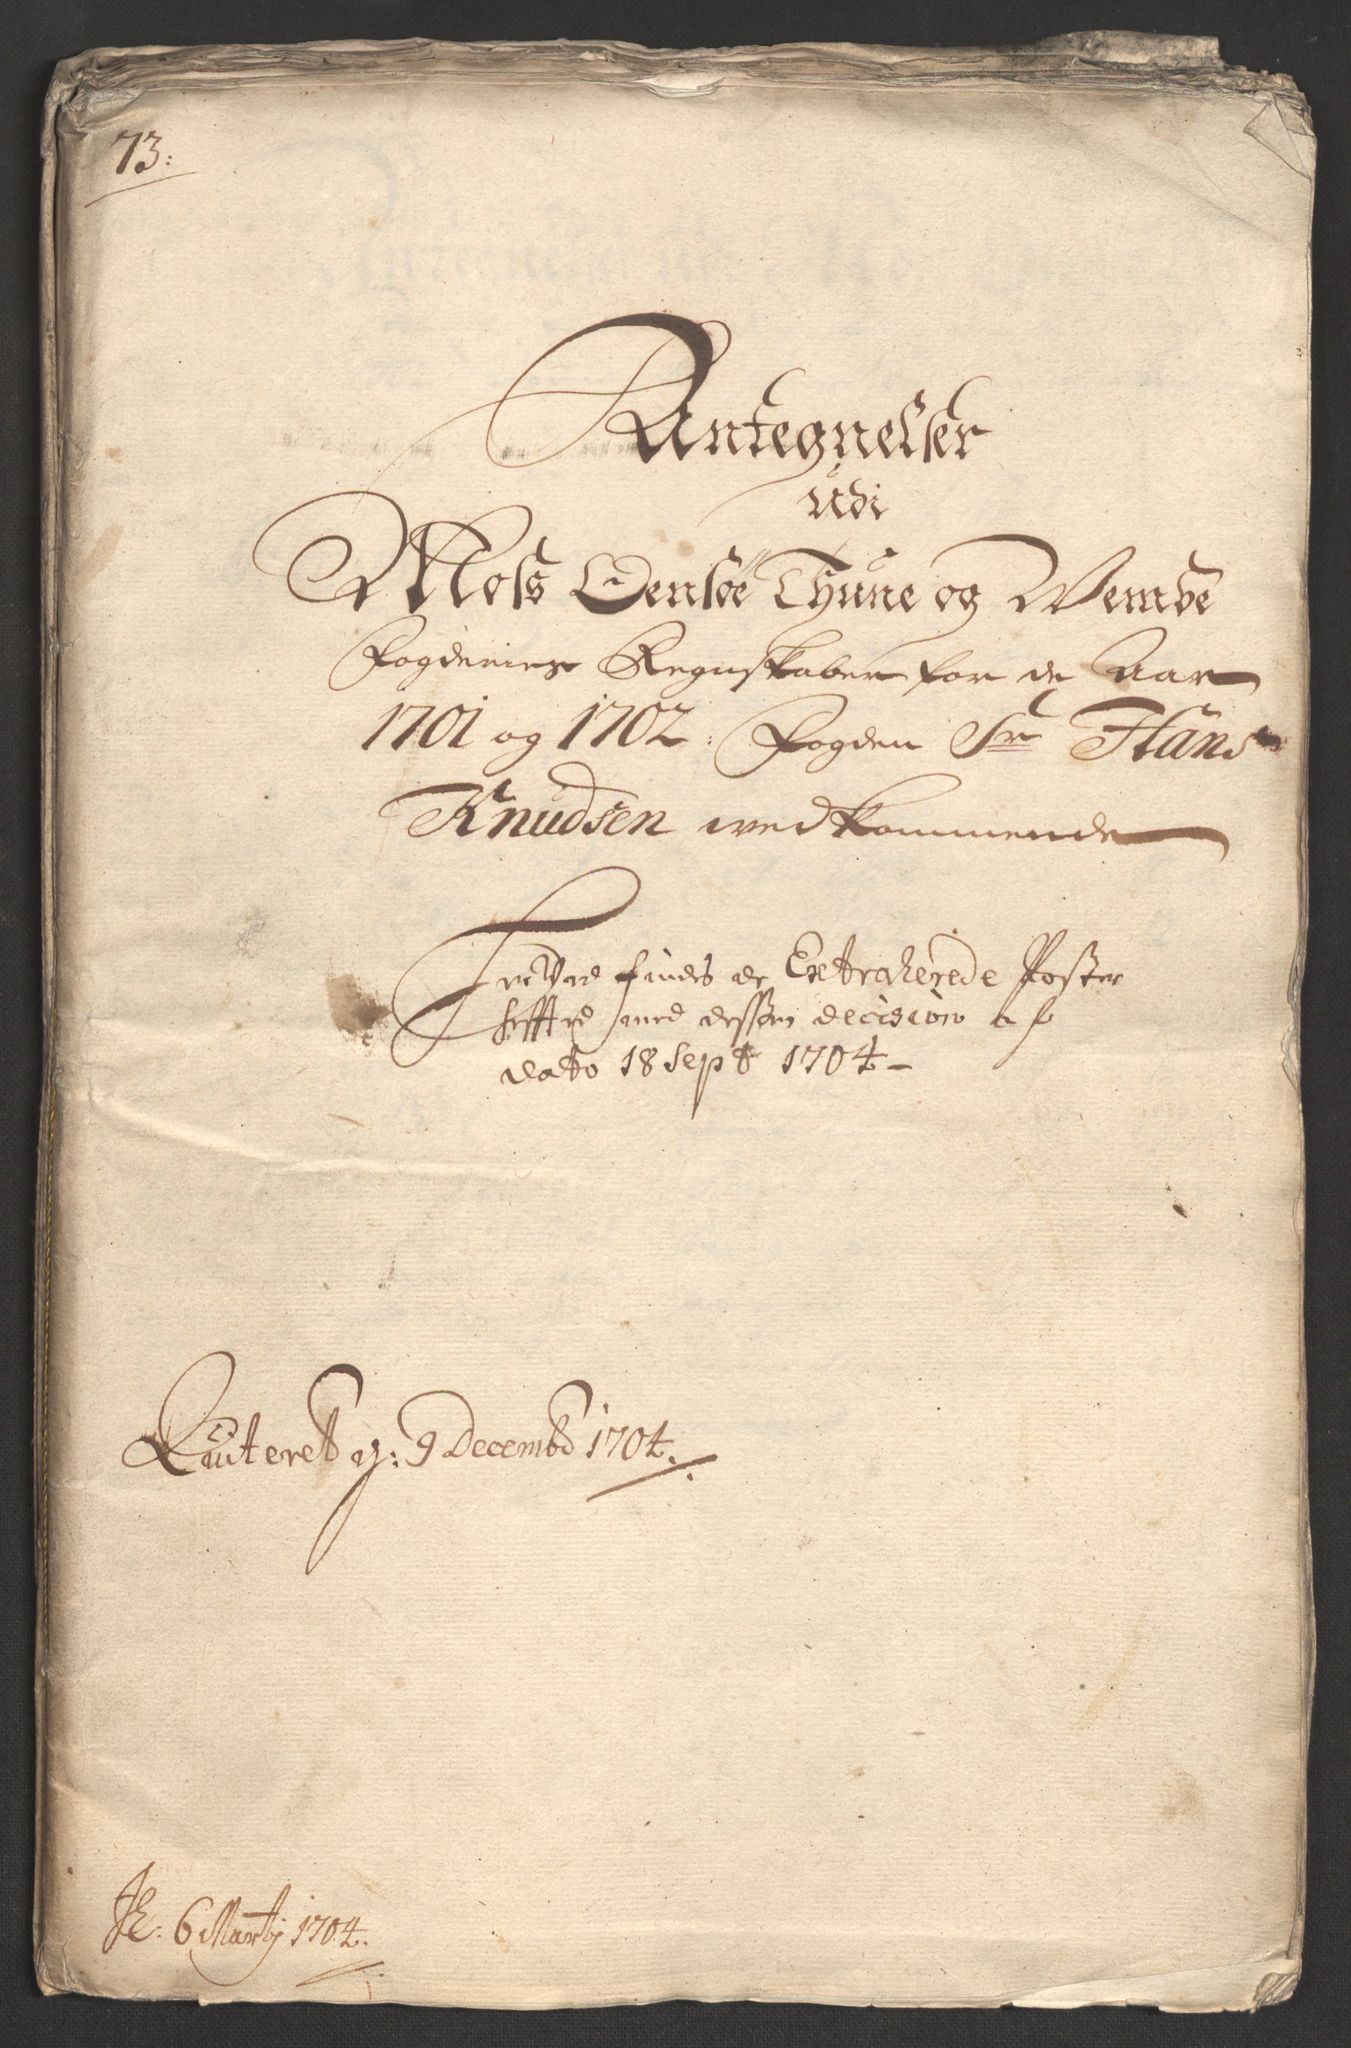 73:
Antegnelser
udi
Moss Oensöe Thune og Wemve
Fogderies Regnskaber for de Aar
1701 og 1702. Fogden Sr Hans
Knudsen wedkommende
findes de Extraherede Poster
heffted med dessen decision af
dato 18 Sept 1704
Qviteret d: 9 Decembr 1704.
6 Martij 1704.